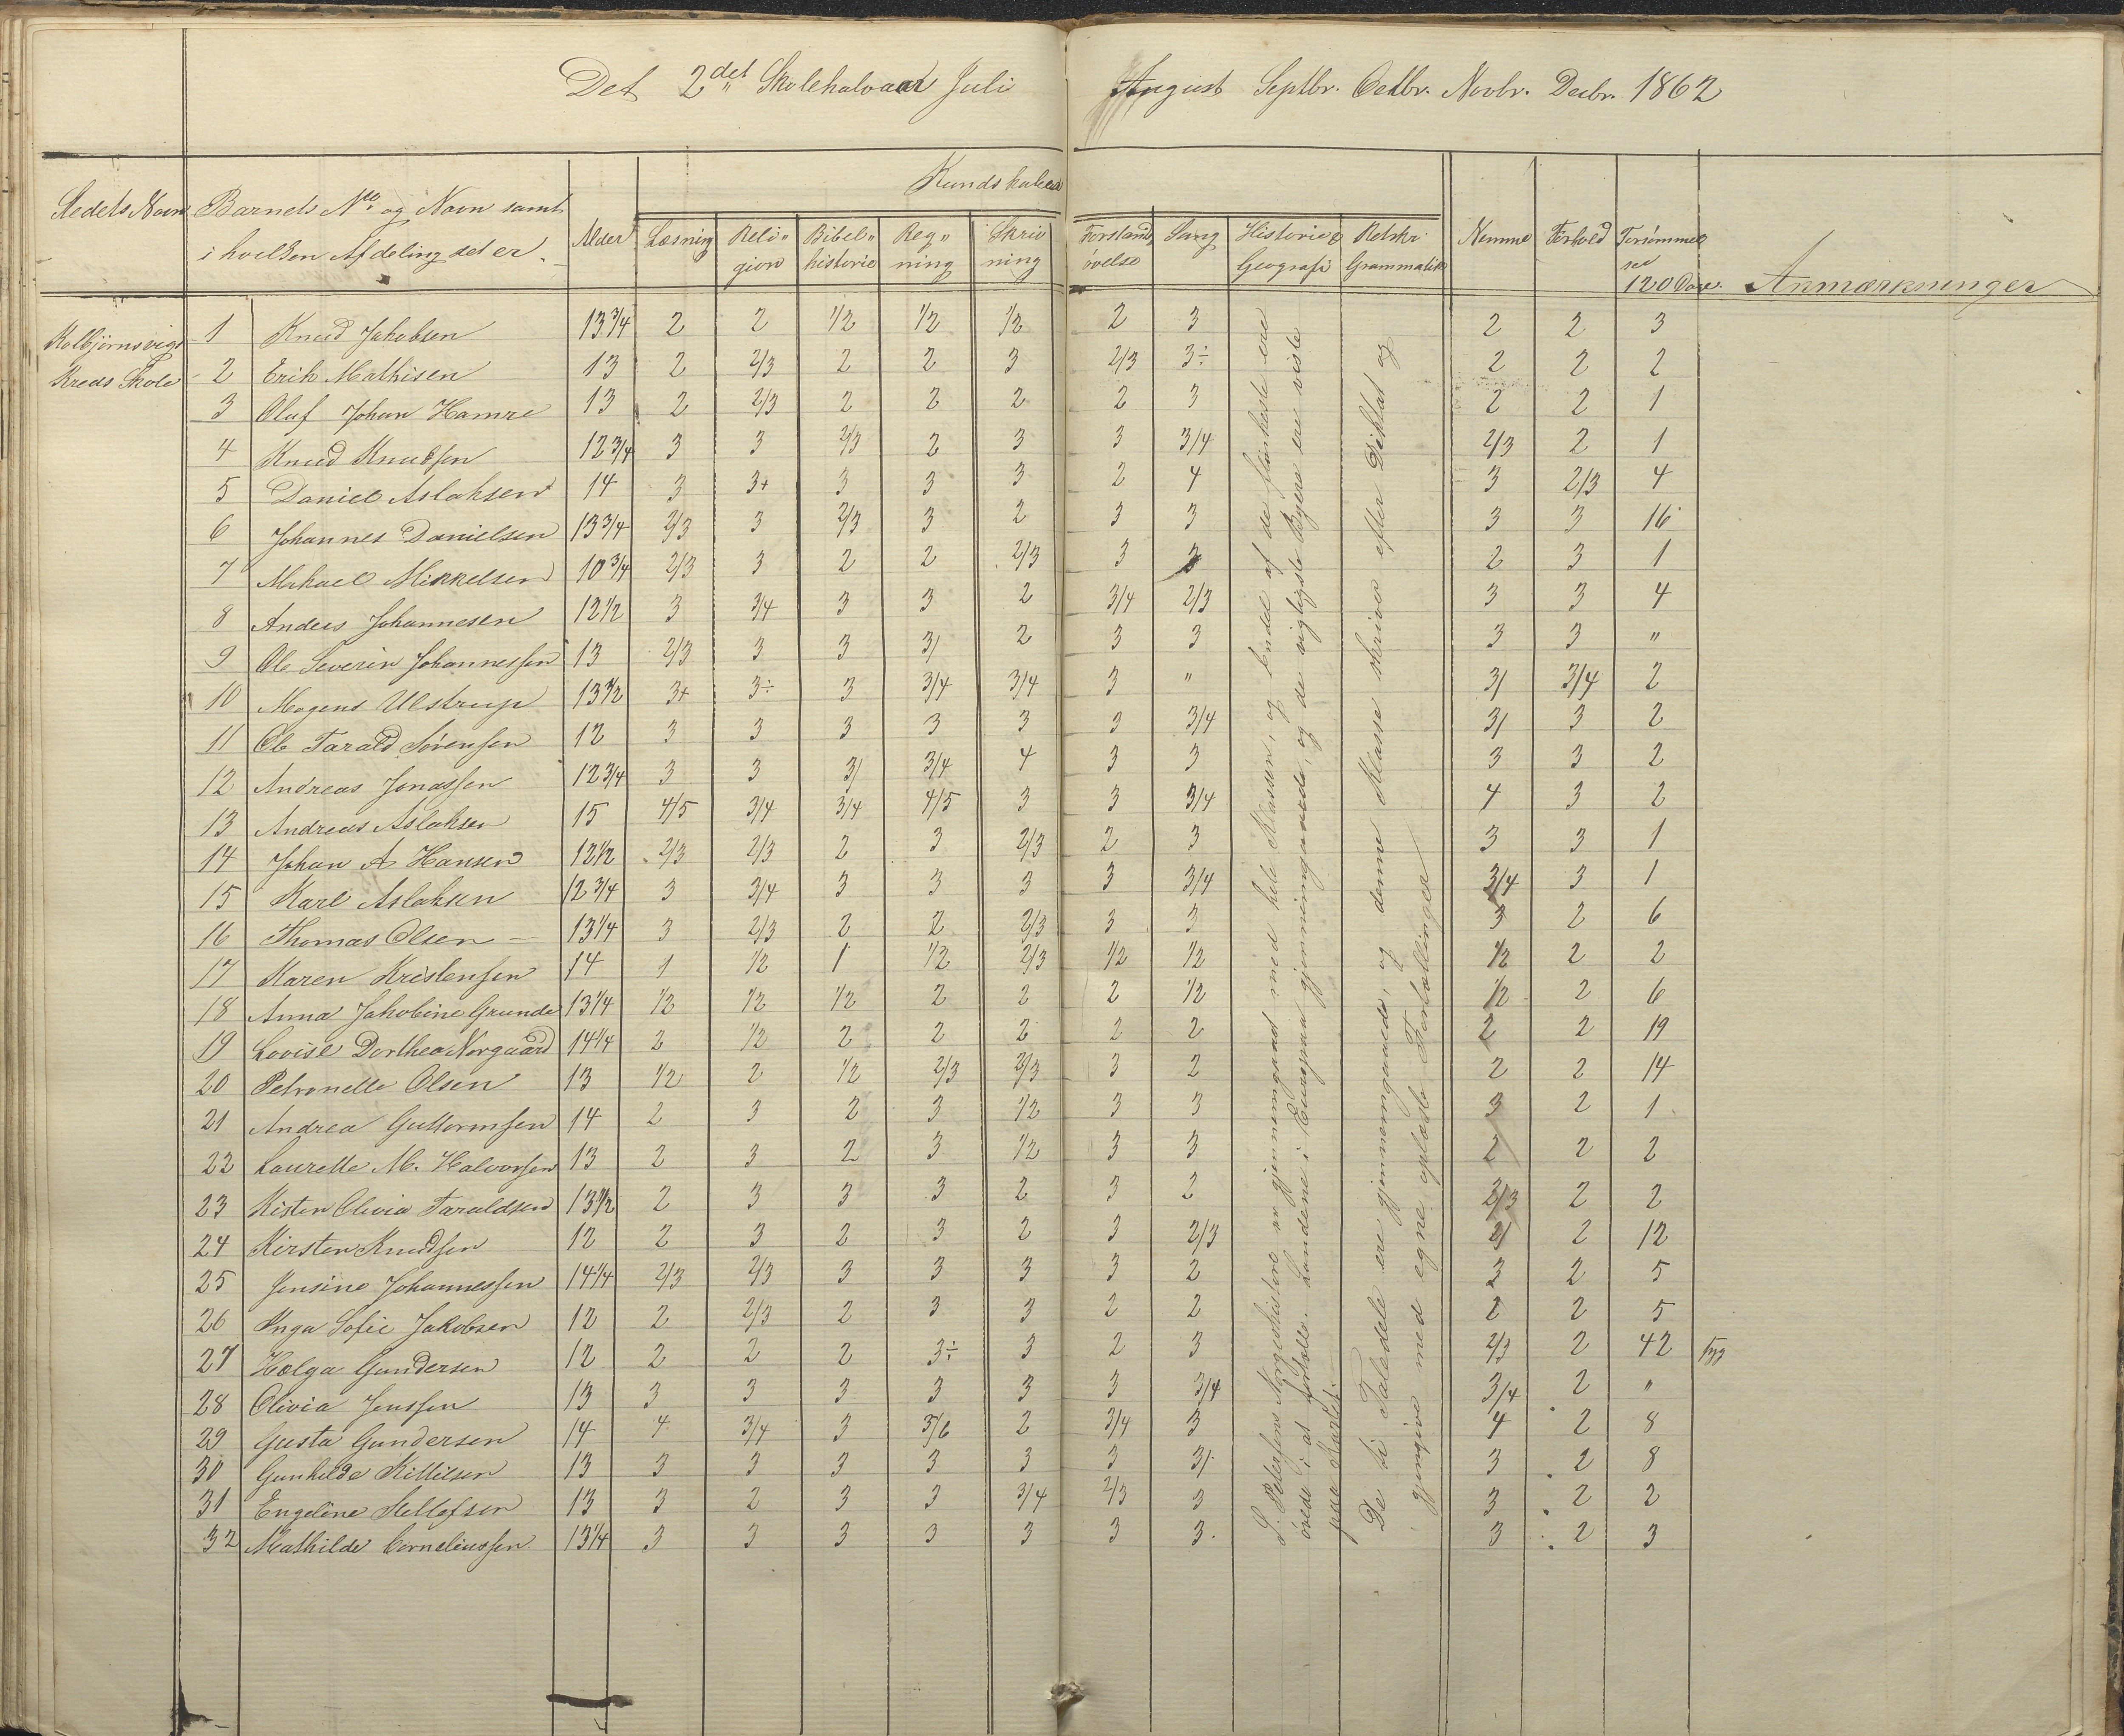 Det 2det Skolehalvaar Juli August Septbr. Octbr. Novbr. Decbr. 1862
Kundskaber
Stedets Navn Barnets No og Navn samt i hvilken Afdeling det er. Alder Læsning Reli„gion Bibel„historie Reg„ning Skrivning Forstands øvelse Sang Historie & Geografi Retskr. Grammatik Nemme Forhold Forsømmel sed 120 Dage. Anmærkninger
Kolbjørnsvigs 1 Knud Jakobsen 13 3/4 2 2 1/2 1/2 1/2 2 3 2 2 3
Kreds Skole 2 Erik Mathisen 13 2 2/3 2 2 3 2/3 3÷ 2 2 2
3 Oluf Johan Hamre 13 2 2/3 2 2 2 2 3 2 2 1
4 Knud Knudsen 12 3/4 3 3 2/3 2 3 3 3/4 2/3 2 1
5 Daniel Aslaksen 14 3 3+ 3 3 3 2 4 3 2/3 4
6 Johannes Danielsen 13 3/4 2/3 3 2/3 3 2 3 3 3 3 16
7 Mikael Mikkelsen 10 3/4 2/3 3 2 2 2/3 3 3 2 3 1
8 Anders Johannesen 12 1/2 3 3/4 3 3 2 3/4 2/3 3 3 4
9 Ole Severin Johannessen 13 2/3 3 3 3/ 2 3 3 3 3 "
10 Mogens Ulstrup 13 1/2 3+ 3÷ 3 3/4 3/4 3 " 3/ 3/4 2
11 Ole Tarald Sørensen 12 3 3 3 3 3 3 3/4 3/ 3 2
12 Andreas Jonassen 12 3/4 3 3 3/ 3/4 4 3 3 3 3 2
13 Andreas Aslaksen 15 4/5 3/4 3/4 4/5 3 3 3/4 4 3 2
14 Johan A Hansen 12 1/2 2/3 2/3 2 3 2/3 2 3 3 3 1
15 Karl Aslaksen 12 3/4 3 3/4 3 3 3 3 3/4 3/4 3 1
16 Thomas Olsen 13 1/4 3 2/3 2 2 2/3 3 3 3 2 6
17 Karen Kristensen 14 1 1/2 1 1/2 2/3 1/2 1/2 1/2 2 2
18 Anna Jakobine Grunde 13 1/4 1/2 1/2 1/2 2 2 2 1/2 1/2 2 6
19 Lovise Dorthea Norgaard 14 1/4 2 1/2 2 2 2 2 2 2 2 19
20 Petronelle Olsen 13 1/2 2 1/2 2/3 2/3 3 2 2 2 14
21 Andrea Guttormsen 14 2 3 2 3 1/2 3 3 3 2 1
22 Laurette M. Halvorsen 13 2 3 2 3 1/2 3 3 2 2 2
23 Kisten Olivia Taraldsen 13 1/2 2 3 3 3 2 3 2 2/3 2 2
24 Kirsten Knudsen 12 2 3 2 3 2 3 2/3 2/ 2 12
25 Jensine Johannessen 14 1/4 2/3 2/3 3 3 3 3 2 3 2 5
26 Inga Sofie Jakobsen 12 2 2/3 2 3 3 2 2 2 2 5
27 Helga Gundersen 12 2 2 2 3÷ 3 2 3 2/3 2 42 syg
28 Olivia Jenssen 13 3 3 3 3 3 3 3/4 3/4 2 "
29 Gusta Gundersen 14 4 3/4 3 5/6 2 3/4 3 4 2 8
30 Gunhilde Killiesen 13 3 3 3 3 3 3 3/ 3 2 8
31 Engeline Stellefsen 13 3 2 3 3 3/4 2/3 3 3 2 2
32 Mathilde Corneliussen 13 1/4 3 3 3 3 3 3 3 3 2 3
S. Petersens Norgeshistorie er gjennemgaaet med hele Klassen, og endel af de flinkeste ere
øvede i at fortælle. Landene i Europa gjennemgaaede, og de vigtigste Byer ere viste
paa Kartet.
De ti Taledele ere gjennemgaaede, og denne Klasse skriver efter Diktat og
gjengive med egne oplæste Fortællinger